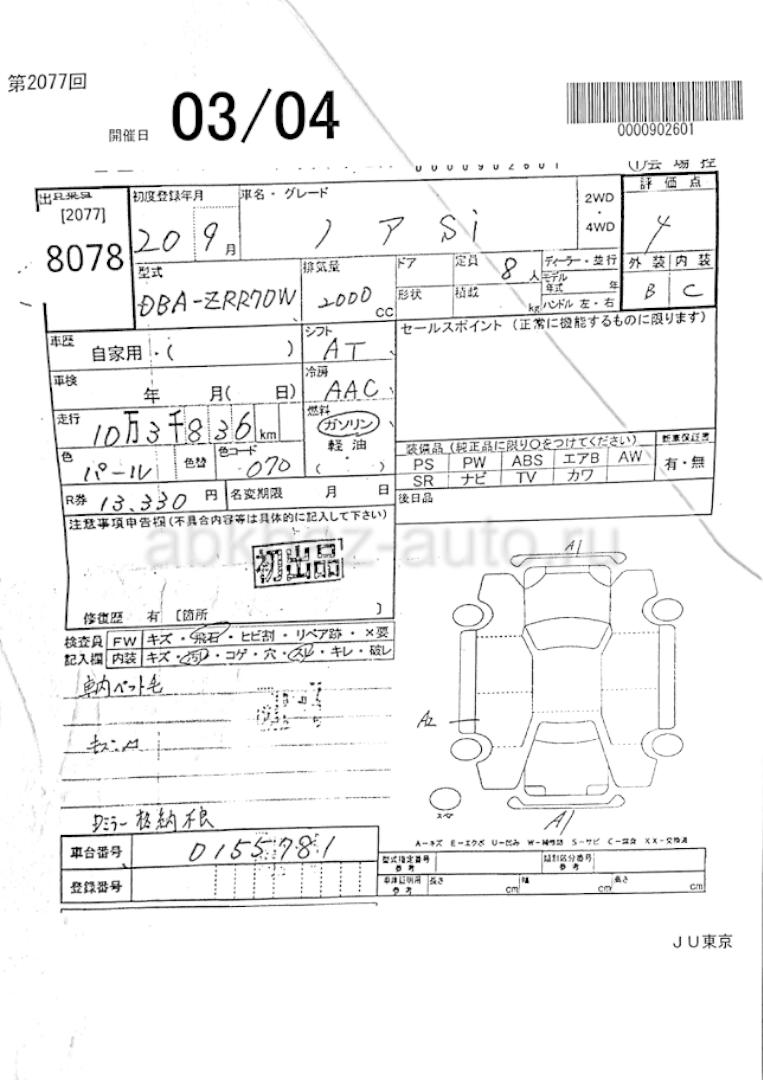 第2077回
開催日 03/04
0000902601
0000902601
評価点
[2077]
8078
初度登録年月
20 9月
車名・グレード
ノア Si
2WD
・
4WD
4
外装 内装
B C
型式
DBA-ZRR70W
排気量
2000 CC
ドア
定員 8人
ディーラー・並行
モデル年式 年
形状
積載 kg
ハンドル 左・右
車歴 自家用・( )
シフト AT
セールスポイント (正常に機能するものに限ります)
車検 年 月( 日)
冷房 AAC
走行 10万3千836 km
燃料 ガソリン
軽油
( ・ )
色 パール
色替
色コード 070
装備品 (純正品に限り○をつけてください)
新車保証書
PS PW ABS エアB AW
有・無
SR ナビ TV カワ
R券 13.330 円
名変期限 月 日
後日品
注意事項申告欄(不具合内容等は具体的に記入して下さい)
初出品
abkhaz-auto.ru
修復歴 有 [箇所 ]
検査員 FW キズ・飛石・ヒビ割・リペア跡・×要
記入欄 内装 キズ・汚れ・コゲ・穴・スレ・キレ・破レ
車内ペット毛
A1
A2
A1
スペア
A-キズ E-エクボ U-凹み W-補修跡 S-サビ C-腐食 XX-交換済
車台番号 0155781
登録番号
型式指定番号 参考
類別区分番号 参考
車庫証明用 参考 長さ cm 幅 cm 高さ cm
JU東京